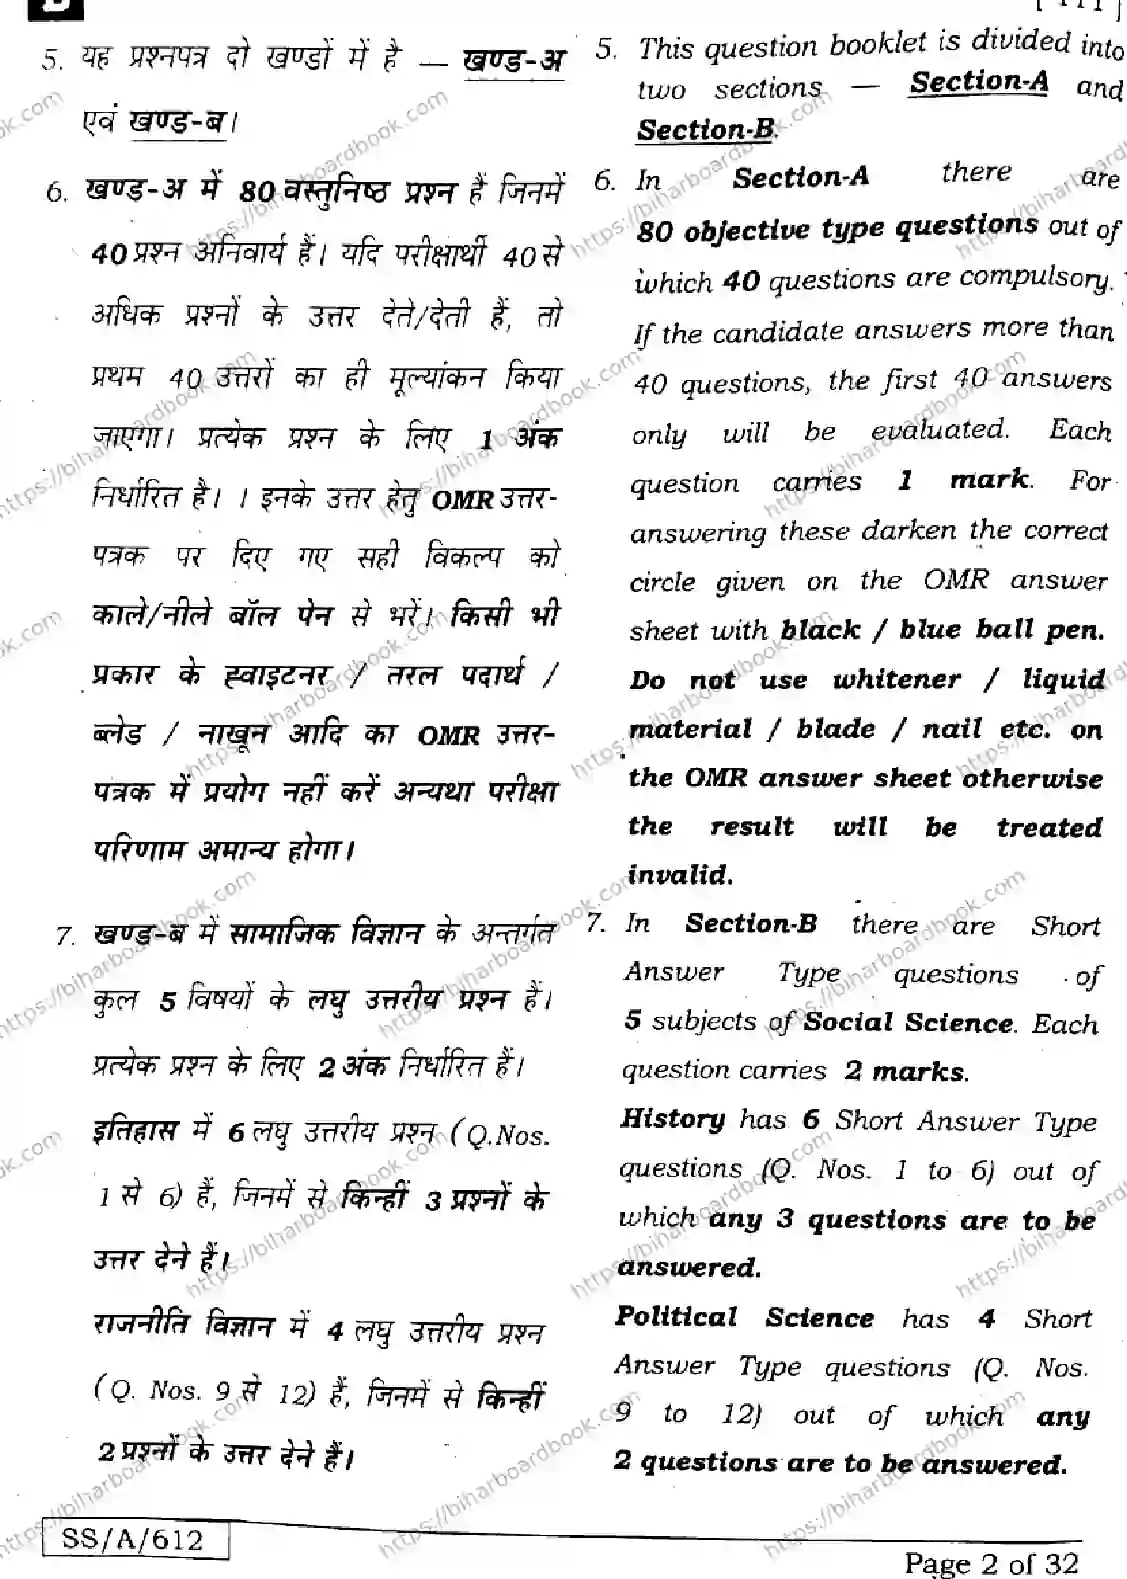 [ 111 ]
5. यह प्रश्नपत्र दो खण्डों में है — खण्ड-अ
एवं खण्ड-ब।
6. खण्ड-अ में 80 वस्तुनिष्ठ प्रश्न हैं जिनमें
40 प्रश्न अनिवार्य हैं। यदि परीक्षार्थी 40 से
अधिक प्रश्नों के उत्तर देते/देती हैं, तो
प्रथम 40 उत्तरों का ही मूल्यांकन किया
जाएगा। प्रत्येक प्रश्न के लिए 1 अंक
निर्धारित है। । इनके उत्तर हेतु OMR उत्तर-
पत्रक पर दिए गए सही विकल्प को
काले/नीले बॉल पेन से भरें। किसी भी
प्रकार के ह्वाइटनर / तरल पदार्थ /
ब्लेड / नाखून आदि का OMR उत्तर-
पत्रक में प्रयोग नहीं करें अन्यथा परीक्षा
परिणाम अमान्य होगा।
7. खण्ड-ब में सामाजिक विज्ञान के अन्तर्गत
कुल 5 विषयों के लघु उत्तरीय प्रश्न हैं।
प्रत्येक प्रश्न के लिए 2 अंक निर्धारित हैं।
इतिहास में 6 लघु उत्तरीय प्रश्न (Q.Nos.
1 से 6) हैं, जिनमें से किन्हीं 3 प्रश्नों के
उत्तर देने हैं।
राजनीति विज्ञान में 4 लघु उत्तरीय प्रश्न
(Q. Nos. 9 से 12) हैं, जिनमें से किन्हीं
2 प्रश्नों के उत्तर देने हैं।
5. This question booklet is divided into
two sections — Section-A and
Section-B.
6. In Section-A there are
80 objective type questions out of
which 40 questions are compulsory.
If the candidate answers more than
40 questions, the first 40 answers
only will be evaluated. Each
question carries 1 mark. For
answering these darken the correct
circle given on the OMR answer
sheet with black / blue ball pen.
Do not use whitener / liquid
material / blade / nail etc. on
the OMR answer sheet otherwise
the result will be treated
invalid.
7. In Section-B there are Short
Answer Type questions of
5 subjects of Social Science. Each
question carries 2 marks.
History has 6 Short Answer Type
questions (Q. Nos. 1 to 6) out of
which any 3 questions are to be
answered.
Political Science has 4 Short
Answer Type questions (Q. Nos.
9 to 12) out of which any
2 questions are to be answered.
SS/A/612
Page 2 of 32
https://biharboardbook.com